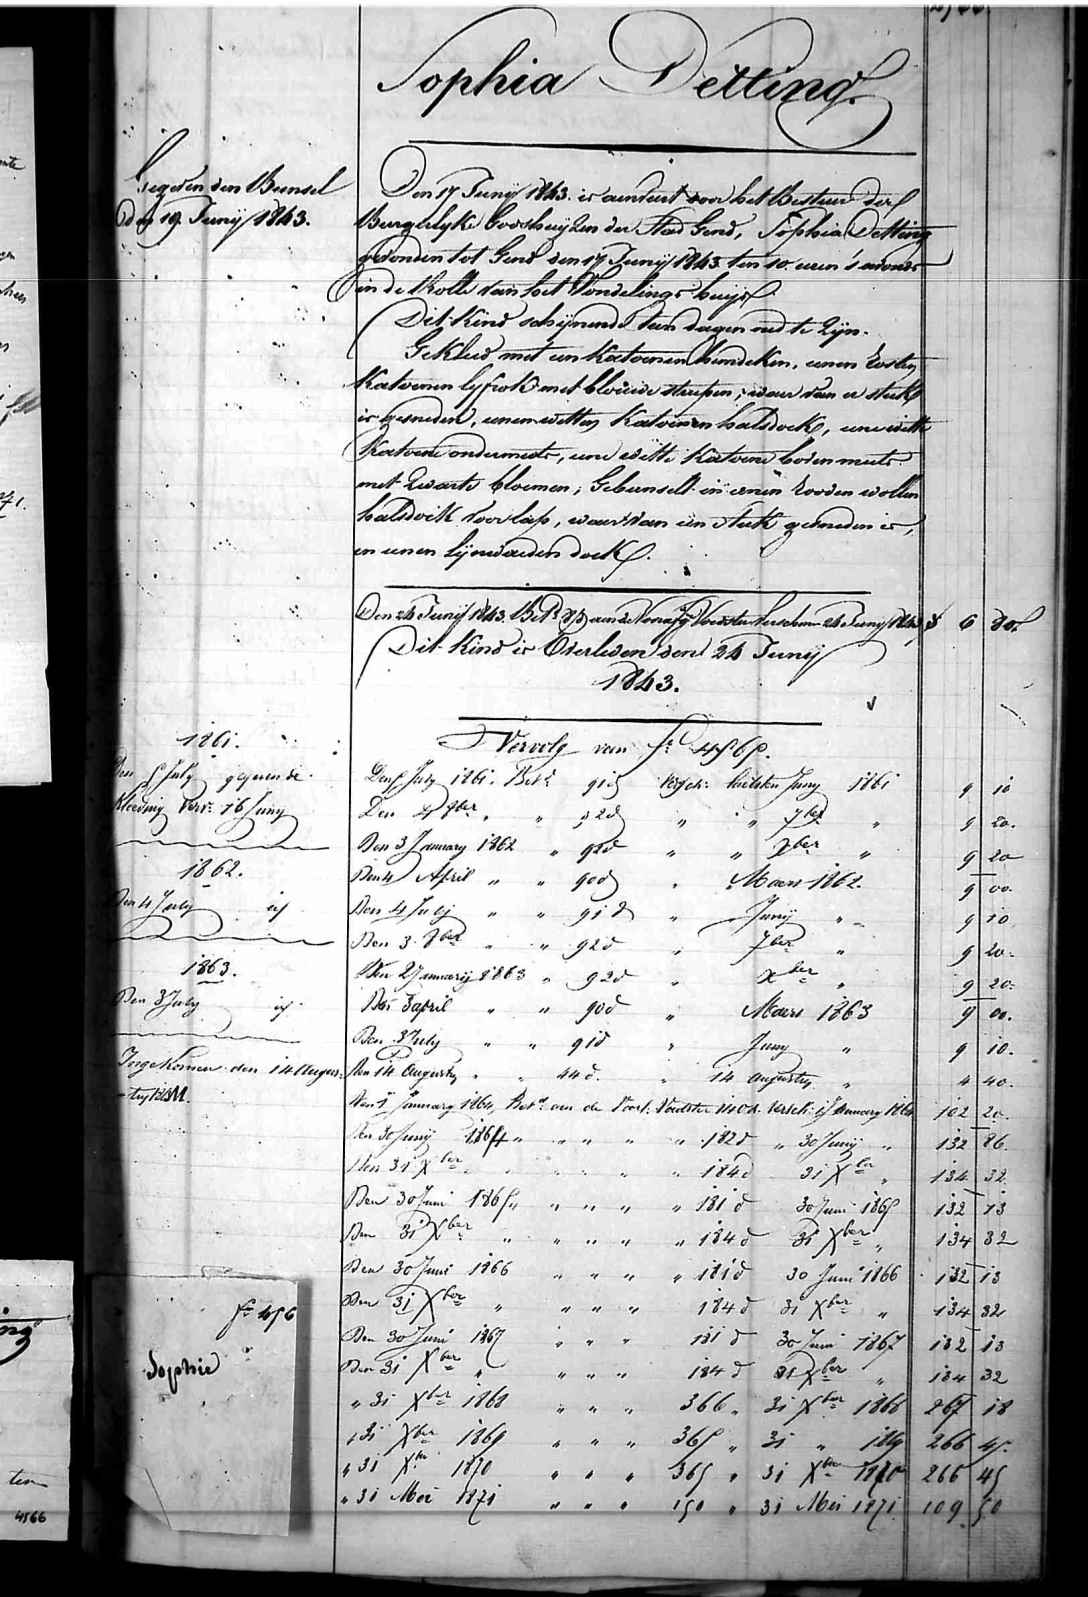 Sophia Detting
Gegeven den Bunsel
den 19 Junij 1843.
Den 17 Junij 1843 is aenveert door het Bestuer der
Burgelyke Godshuyzen der Stad Gend, Sophia Detting
gevonden tot Gend den 17 Junij 1843 ten 10 uren 's avonds
in de Rolle van het Vondelings huys.
Dit kind schijnende tien dagen oud te zijn.
Gekleed met een katoenen hemdeken, eenen
katoenen lyfrok met blauwe streepen, waer van er stuk
is gesneden, eenen witten katoenen halsdoek, eene witte
katoene ondermuts, eene witte katoene boven muts
met zwarte bloemen; Gebunselt in eenen rooden wollen
halsdoek voor lap, waer van een stuk gesneden is,
en eenen lijnwaeden doek.
Den 24 Junij 1843 Bet. aen de Voedster verschenen 24 Junij 1843 6 80
Dit kind is Overleden den 24 Junij
1843.
Vervolg van f° 4565.
1861.
Den 5 July gegeven de
kleeding Vers: 16 Juny
Den 5 July 1861. Bet: 91 d Versch: laetsten Juny 1861 9 10
Den 4 8ber " " 92 d " " 7ber " 9 20.
Den 3 January 1862 " 92 d " " Xber " 9 20
1862.
Den 4 April " " 90 d " Maers 1862. 9 00.
Den 4 July id
Den 4 Julij " " 91 d " Junij " 9 10
Den 3 8ber " " 92 d " 7ber " 9 20.
1863.
Den 2 Januarij 1863 " 92 d " Xber " 9 20.
Den 3 July id
Den 3 april " " 90 d " Maers 1863 9 00.
Den 3 July " " 91 d " Juny " 9 10.
Ingekomen den 14 Augus-
Den 14 Augusty " " 44 d. " 14 augusty " 4 40.
Den 1 January 1864 Bet: aen de Voedster 140 d. Versch: 1 January 1864 102 20
Den 30 Junij 1864 " " " " " 182 d " 30 Junij " 132 86
Den 31 Xber " " " " 184 d 31 Xber " 134 32
Den 30 Juni 1865 " " " " " 181 d 30 Juni 1865 132 13
Den 31 Xber " " " " " 184 d 31 Xber " 134 32
Den 30 Juni 1866 " " " " 181 d 30 Juni 1866 132 13
Den 31 Xber " " " " 184 d 31 Xber " 134 32
f° 456
Den 30 Juni 1867 " " " 181 d 30 Juni 1867 132 13
Sophie
Den 31 Xber " " " " 184 d 31 Xber " 134 32
" 31 Xber 1868 " " " 366 " 31 Xber 1868 267 18
" 31 Xber 1869 " " " 365 " 31 " 1869 266 45
" 31 Xber 1870 " " " 365 " 31 Xber 1870 266 45
" 31 Mei 1871 " " " 150 " 31 Mei 1871 109 50
4566